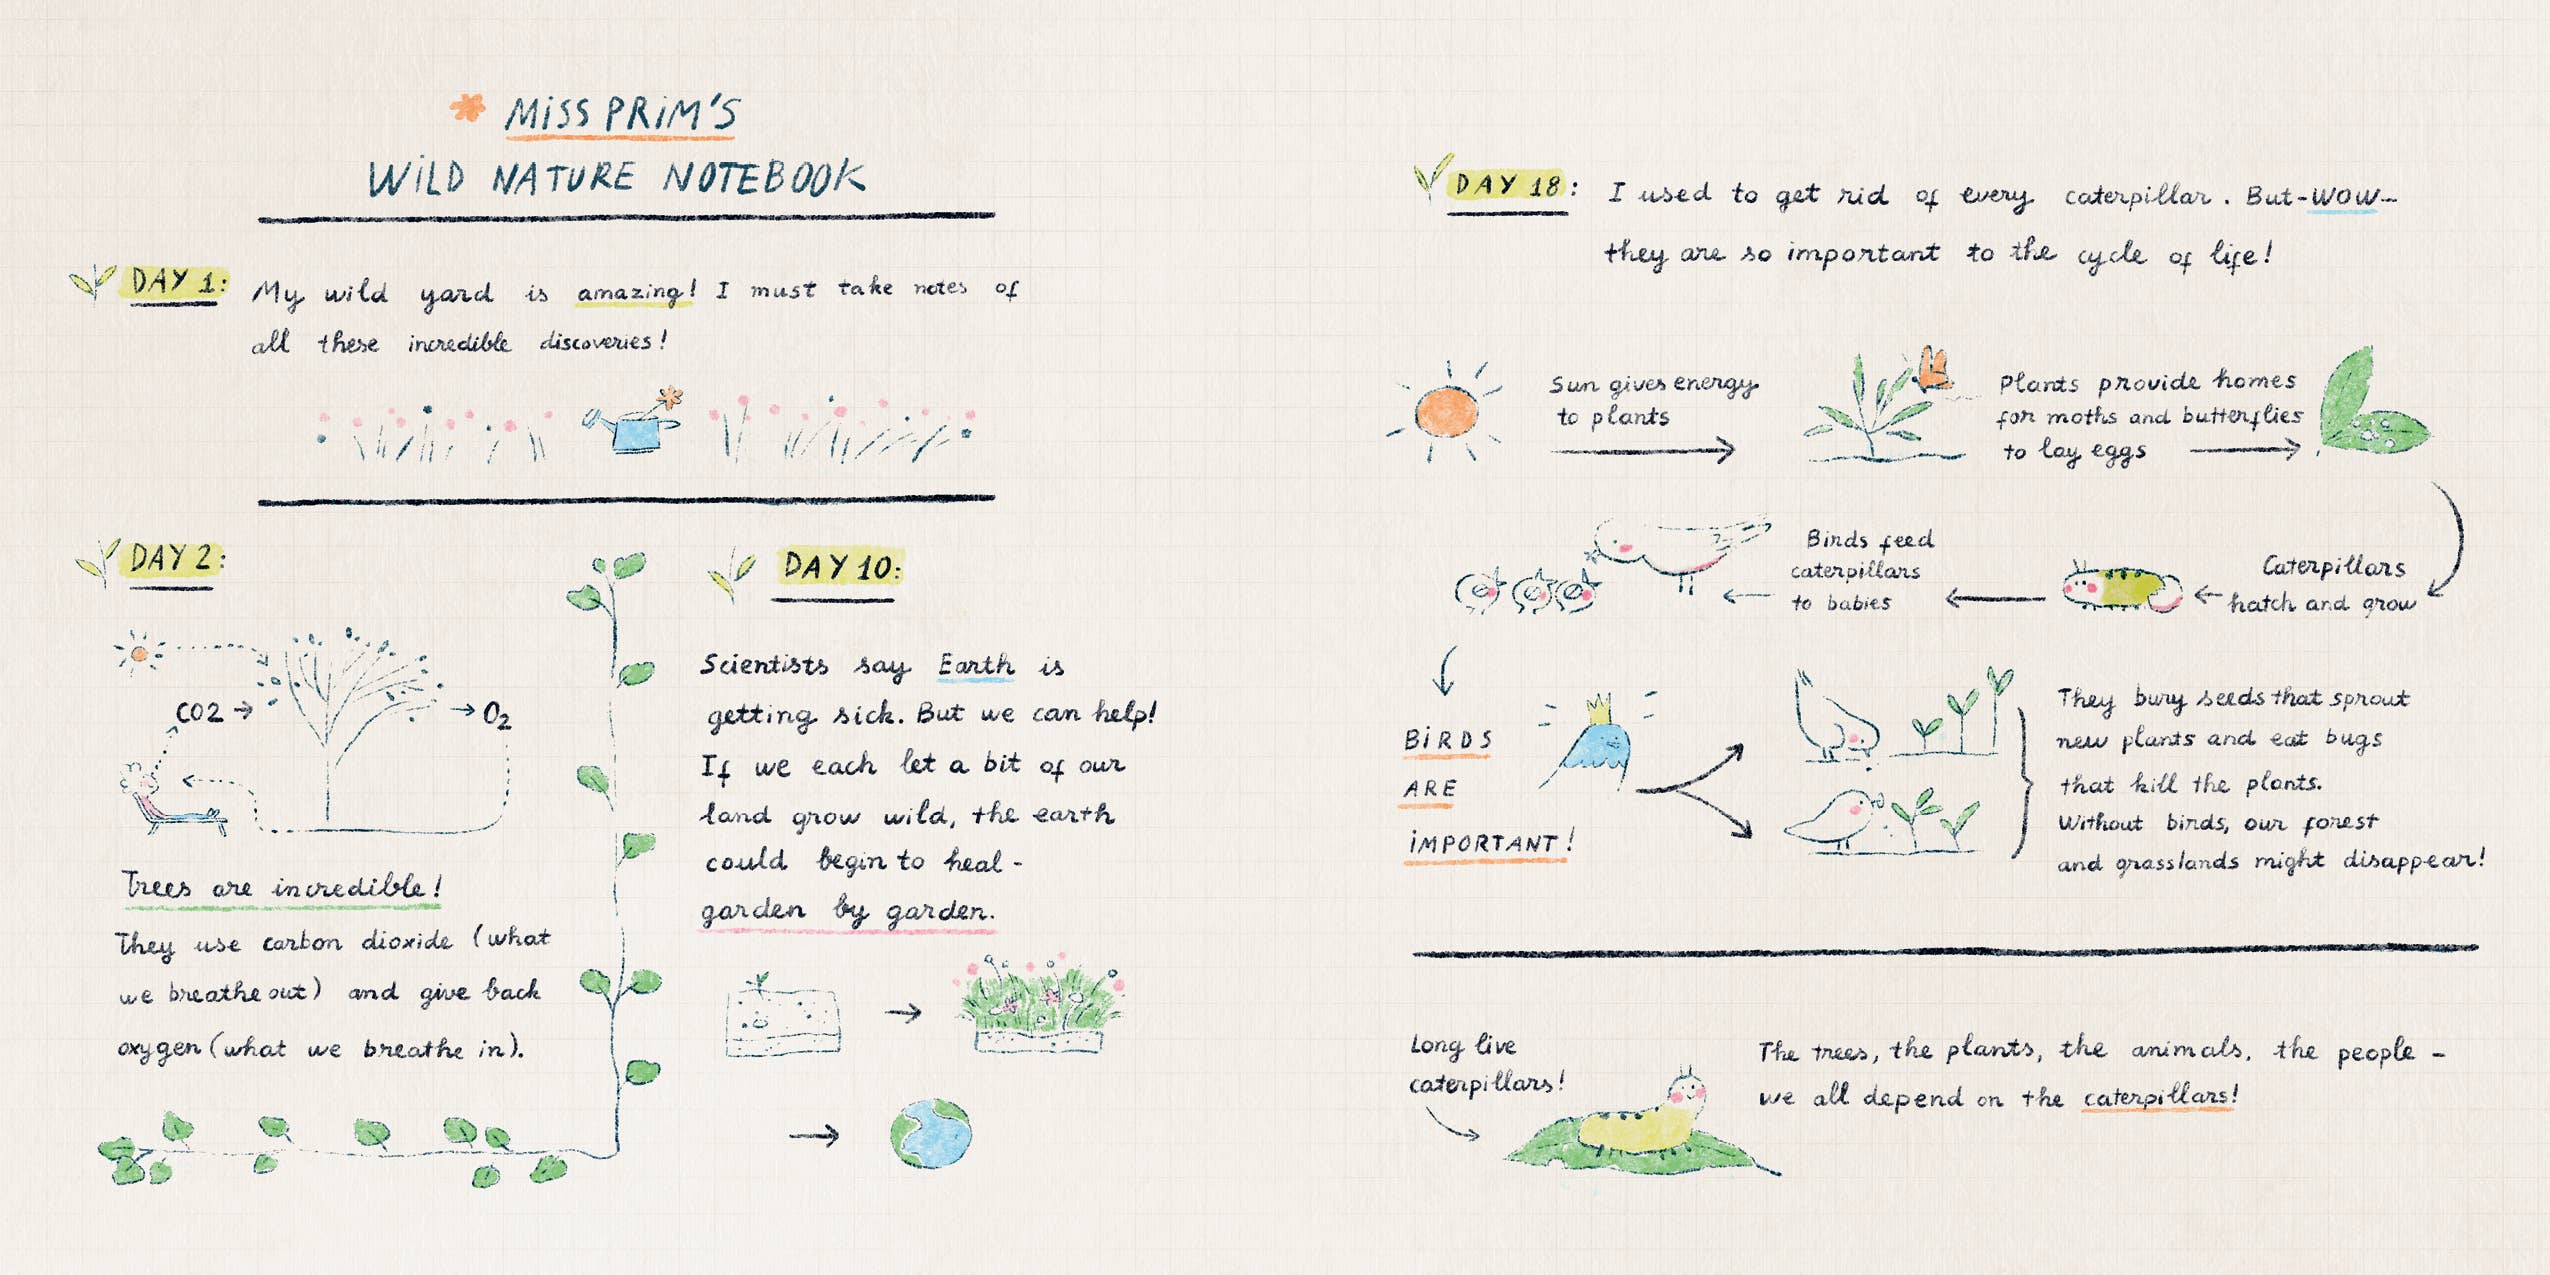 MiSS PRiM'S
WiLD NATURE NOTEBOOK
DAY 1: My wild yard is amazing! I must take notes of
all these incredible discoveries!
DAY 2:
CO2
O2
Trees are incredible!
They use carbon dioxide (what
we breathe out) and give back
oxygen (what we breathe in).
DAY 10:
Scientists say Earth is
getting sick. But we can help!
If we each let a bit of our
land grow wild, the earth
could begin to heal -
garden by garden.
DAY 18: I used to get rid of every caterpillar. But-WOW-
they are so important to the cycle of life!
Sun gives energy
to plants
Plants provide homes
for moths and butterflies
to lay eggs
Caterpillars
hatch and grow
Birds feed
caterpillars
to babies
BiRDS
ARE
iMPORTANT!
They bury seeds that sprout
new plants and eat bugs
that kill the plants.
Without birds, our forest
and grasslands might disappear!
Long live
caterpillars!
The trees, the plants, the animals, the people -
we all depend on the caterpillars!